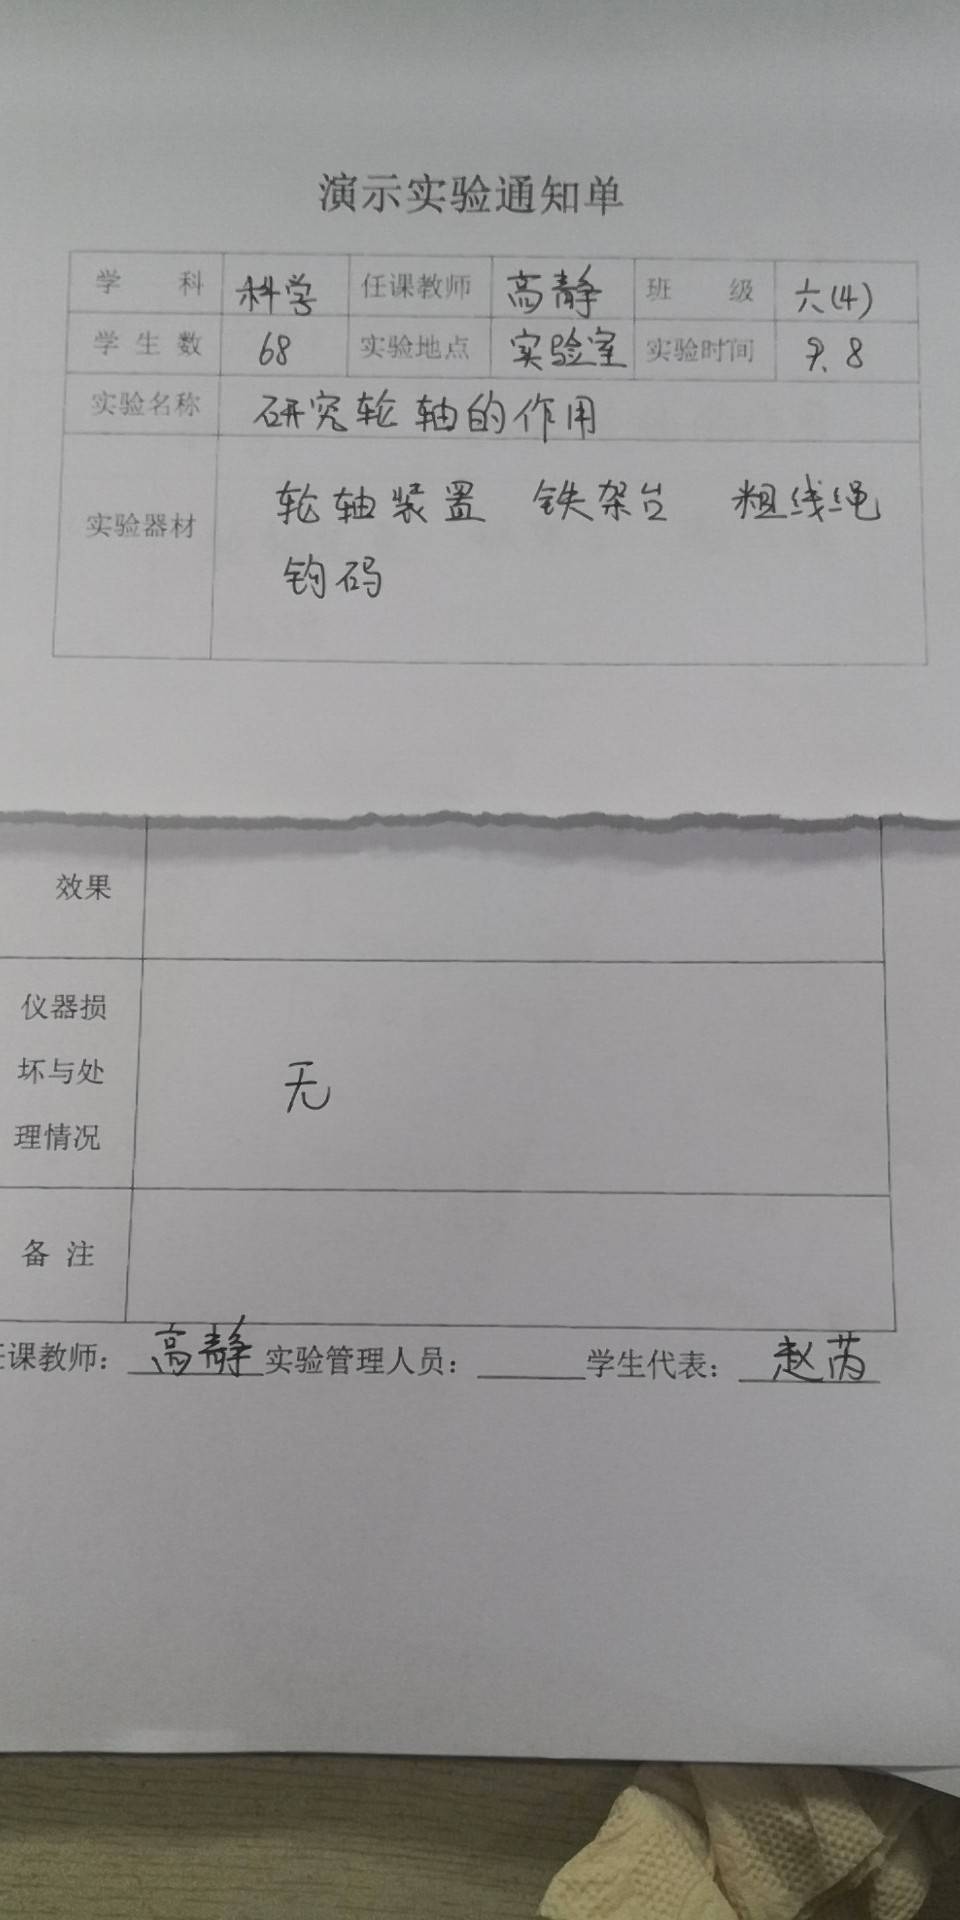 演示实验通知单
学 科 科学 任课教师 高静 班 级 六(4)
学生数 68 实验地点 实验室 实验时间 9.8
实验名称 研究轮轴的作用
实验器材 轮轴装置 铁架台 粗线绳
钩码
效果
仪器损
坏与处
理情况
无
备注
任课教师：高静 实验管理人员： 学生代表：赵芮